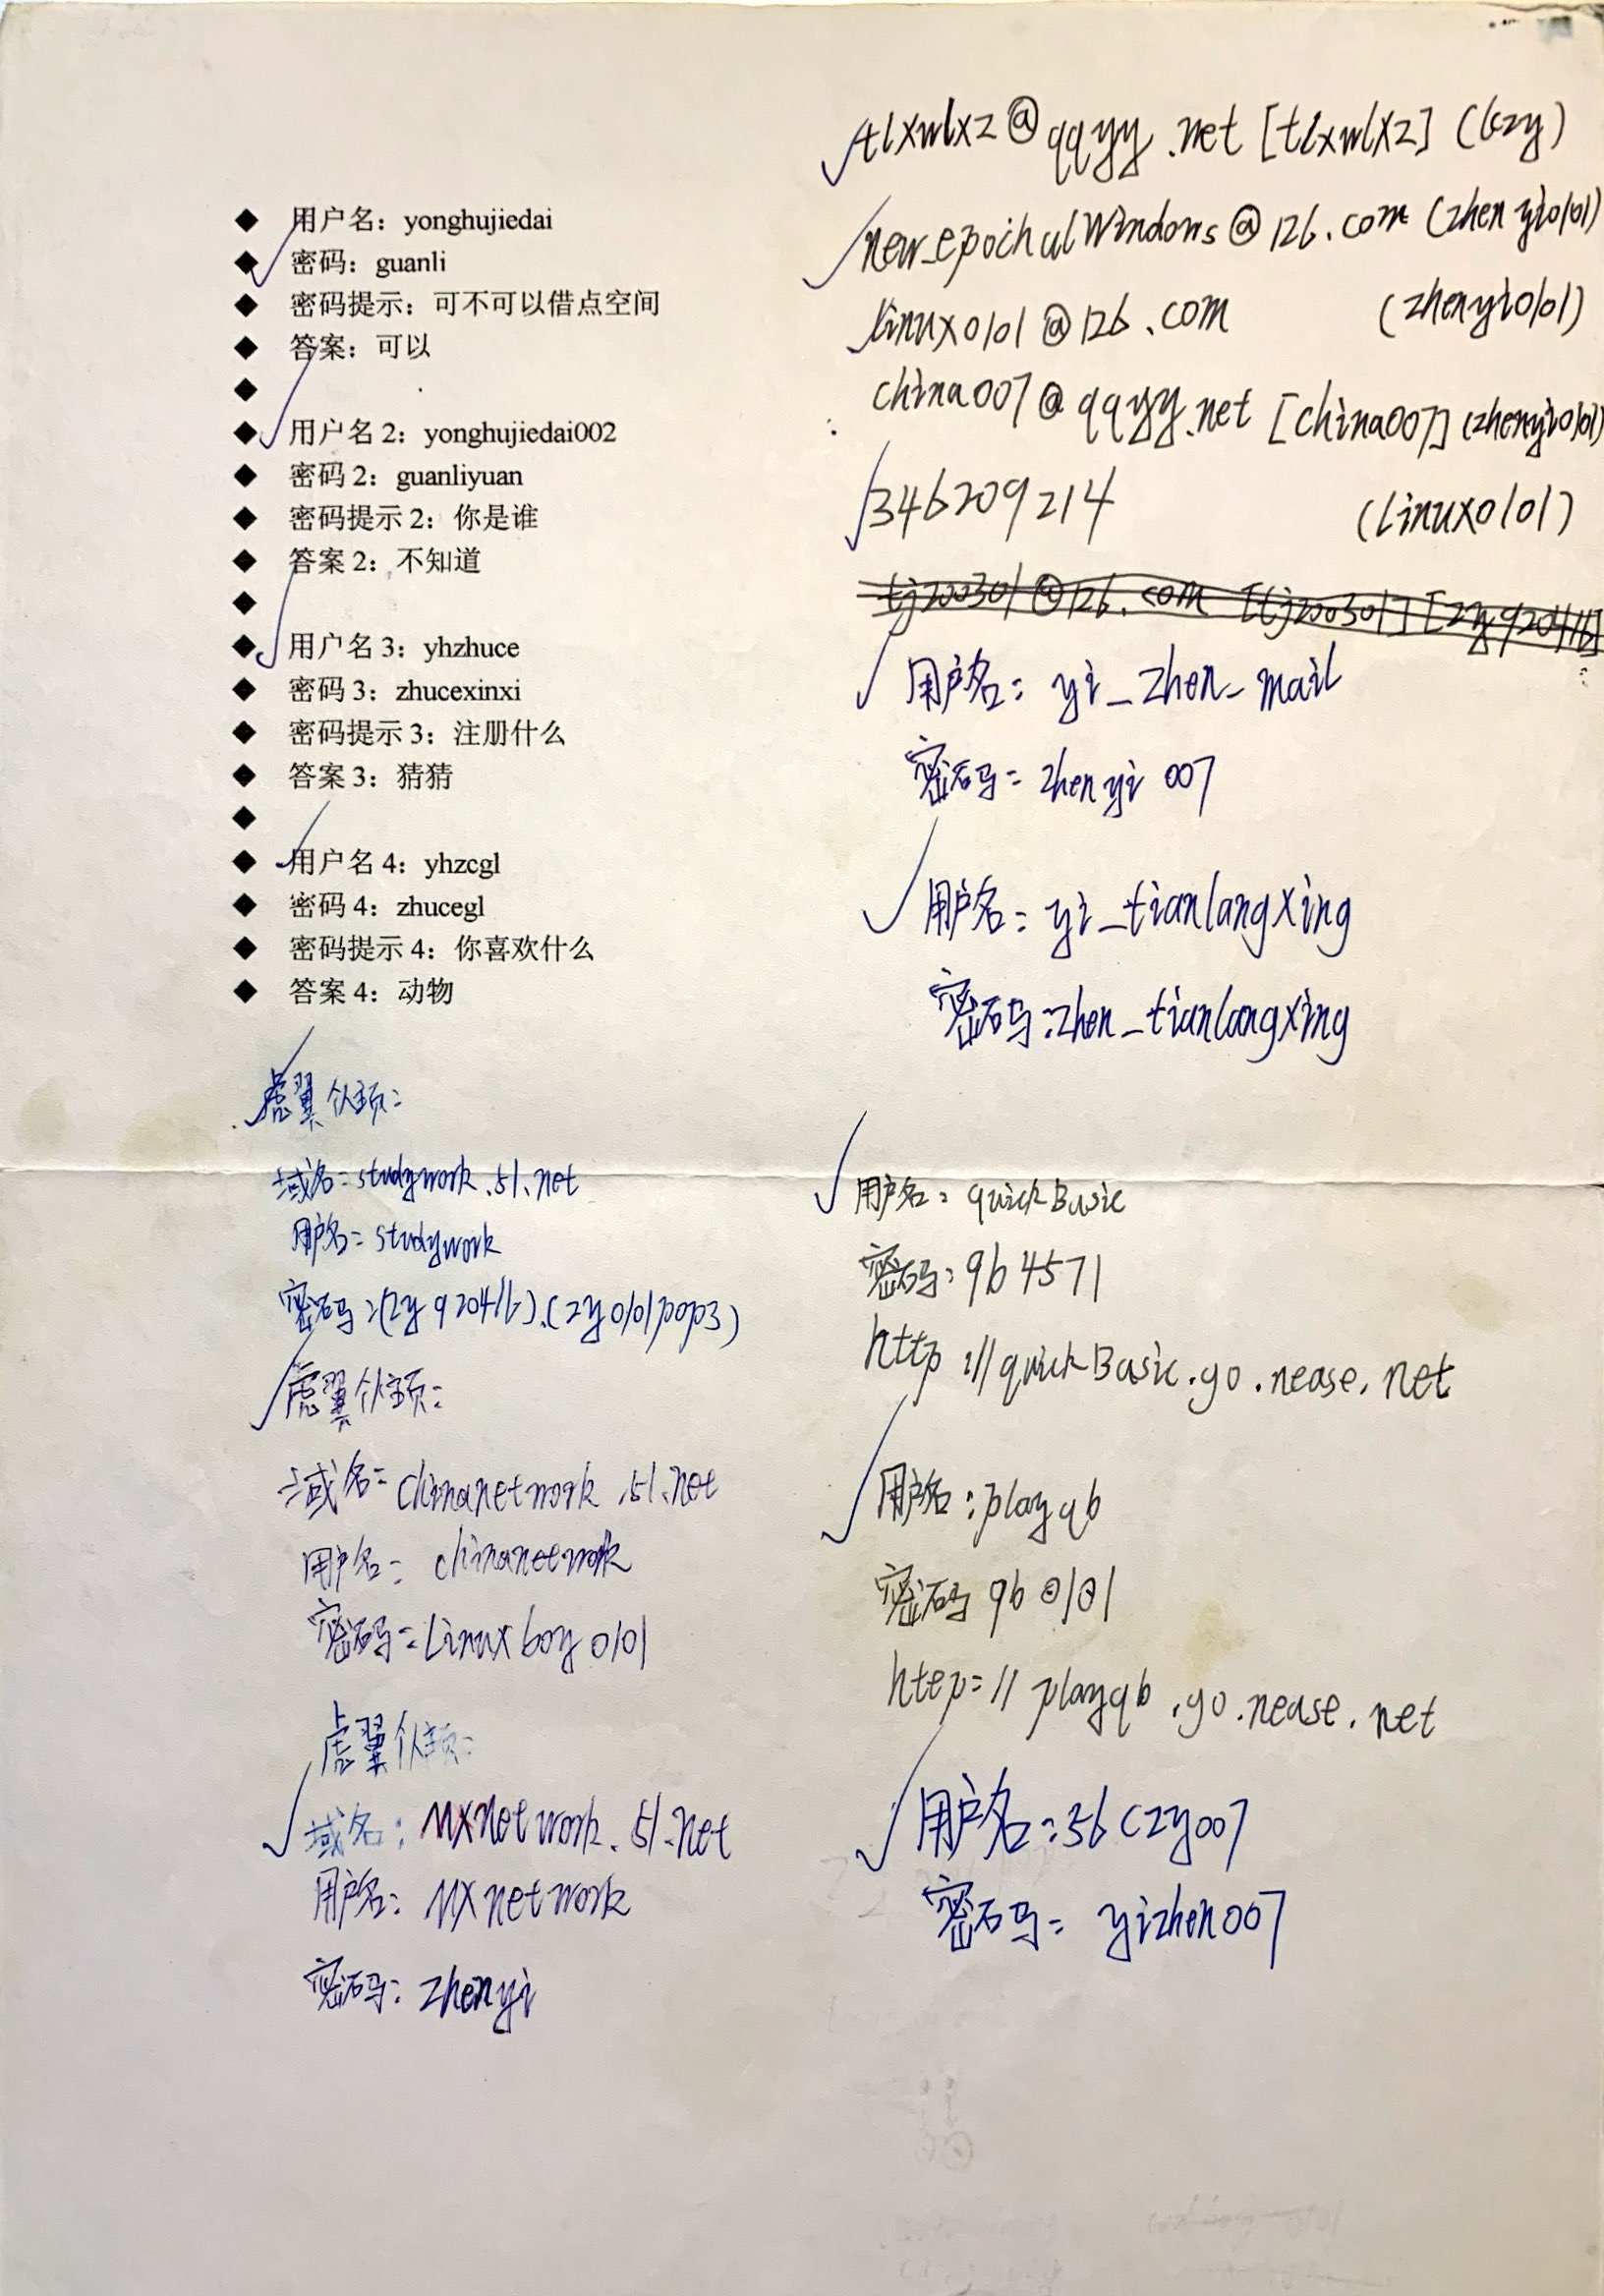 用户名：yonghujiedai
密码：guanli
密码提示：可不可以借点空间
答案：可以
用户名 2：yonghujiedai002
密码 2：guanliyuan
密码提示 2：你是谁
答案 2：不知道
用户名 3：yhzhuce
密码 3：zhucexinxi
密码提示 3：注册什么
答案 3：猜猜
用户名 4：yhzcgl
密码 4：zhucegl
密码提示 4：你喜欢什么
答案 4：动物
虎翼个人主页：
域名：studywork.51.net
用户名：studywork
密码：(zy920416).(zy0101pop3)
虎翼个人主页：
域名：chinanetwork.51.net
用户名：chinanetwork
密码：Linuxboy0101
虎翼个人主页：
域名：MXnetwork.51.net
用户名：MXnetwork
密码：zhenyi
tlxwlxz@qqyy.net [tlxwlxz] (lczy)
new_epochalWindows@126.com (zhenyi0101)
linux0101@126.com (zhenyi0101)
china007@qqyy.net [china007] (zhenyi0101)
346209214 (linux0101)
tj200301@126.com [tj200301] [zy920416]
用户名：yi_zhen_mail
密码：zhenyi007
用户名：yi_tianlangxing
密码：zhen_tianlangxing
用户名：quickBasic
密码：qb4571
http://quickBasic.go.nease.net
用户名：playqb
密码 qb0101
http://playqb.go.nease.net
用户名：36czy007
密码：yizhen007